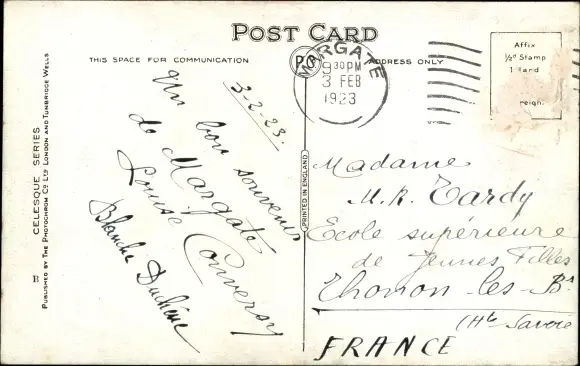 POST CARD
THIS SPACE FOR COMMUNICATION
ADDRESS ONLY
MARGATE
930PM
3 FEB
1923
Affix
½ᵈ Stamp
Inland
reign.
CELESQUE SERIES
PUBLISHED BY THE PHOTOCHROM CO LTD LONDON AND TUNBRIDGE WELLS
B
PRINTED IN ENGLAND
3-2-23.
Un bon souvenir
de Margate
Louise
Blanche
Madame
M. R. Tardy
Ecole supérieure
de Jeunes Filles
Thonon les-Bⁿˢ
(Hᵗᵉ Savoie
FRANCE